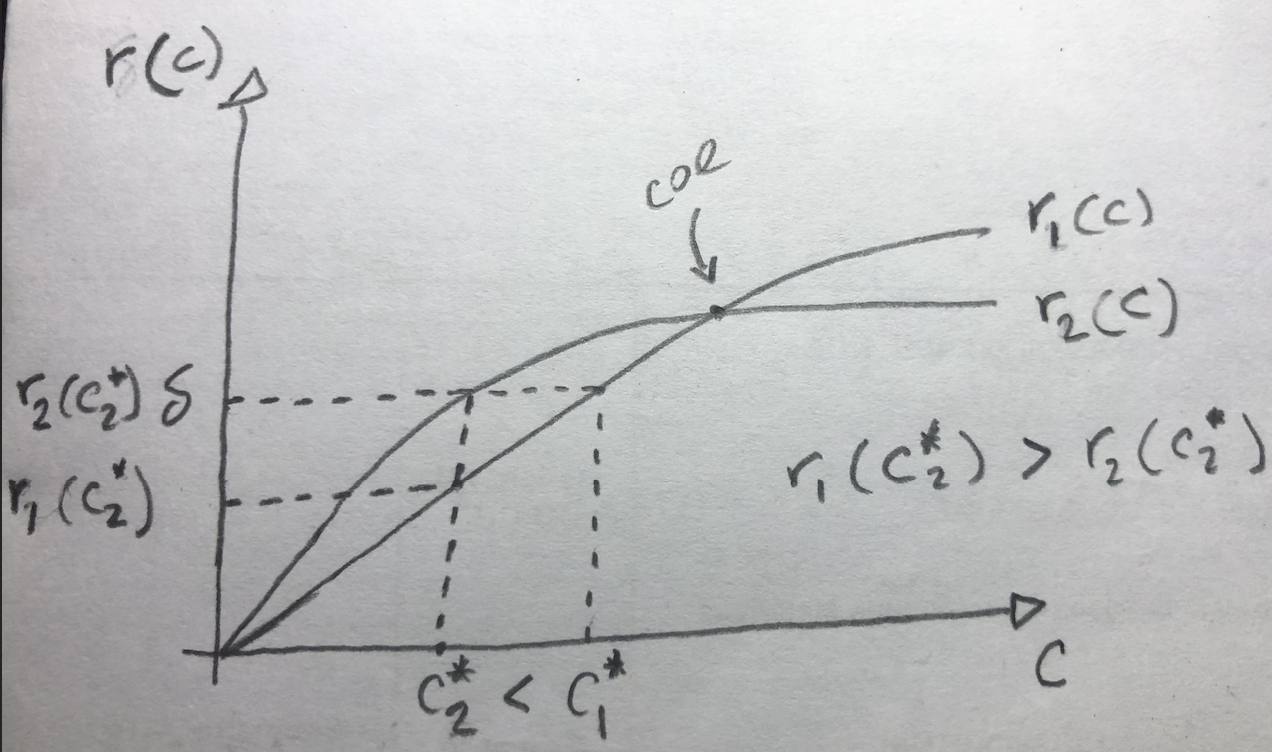 r(c)
coe
r₁(c)
r₂(c)
r₂(c₂*) δ
r₁(c₂*)
r₁(c₂*) > r₂(c₂*)
c₂* < c₁*
C